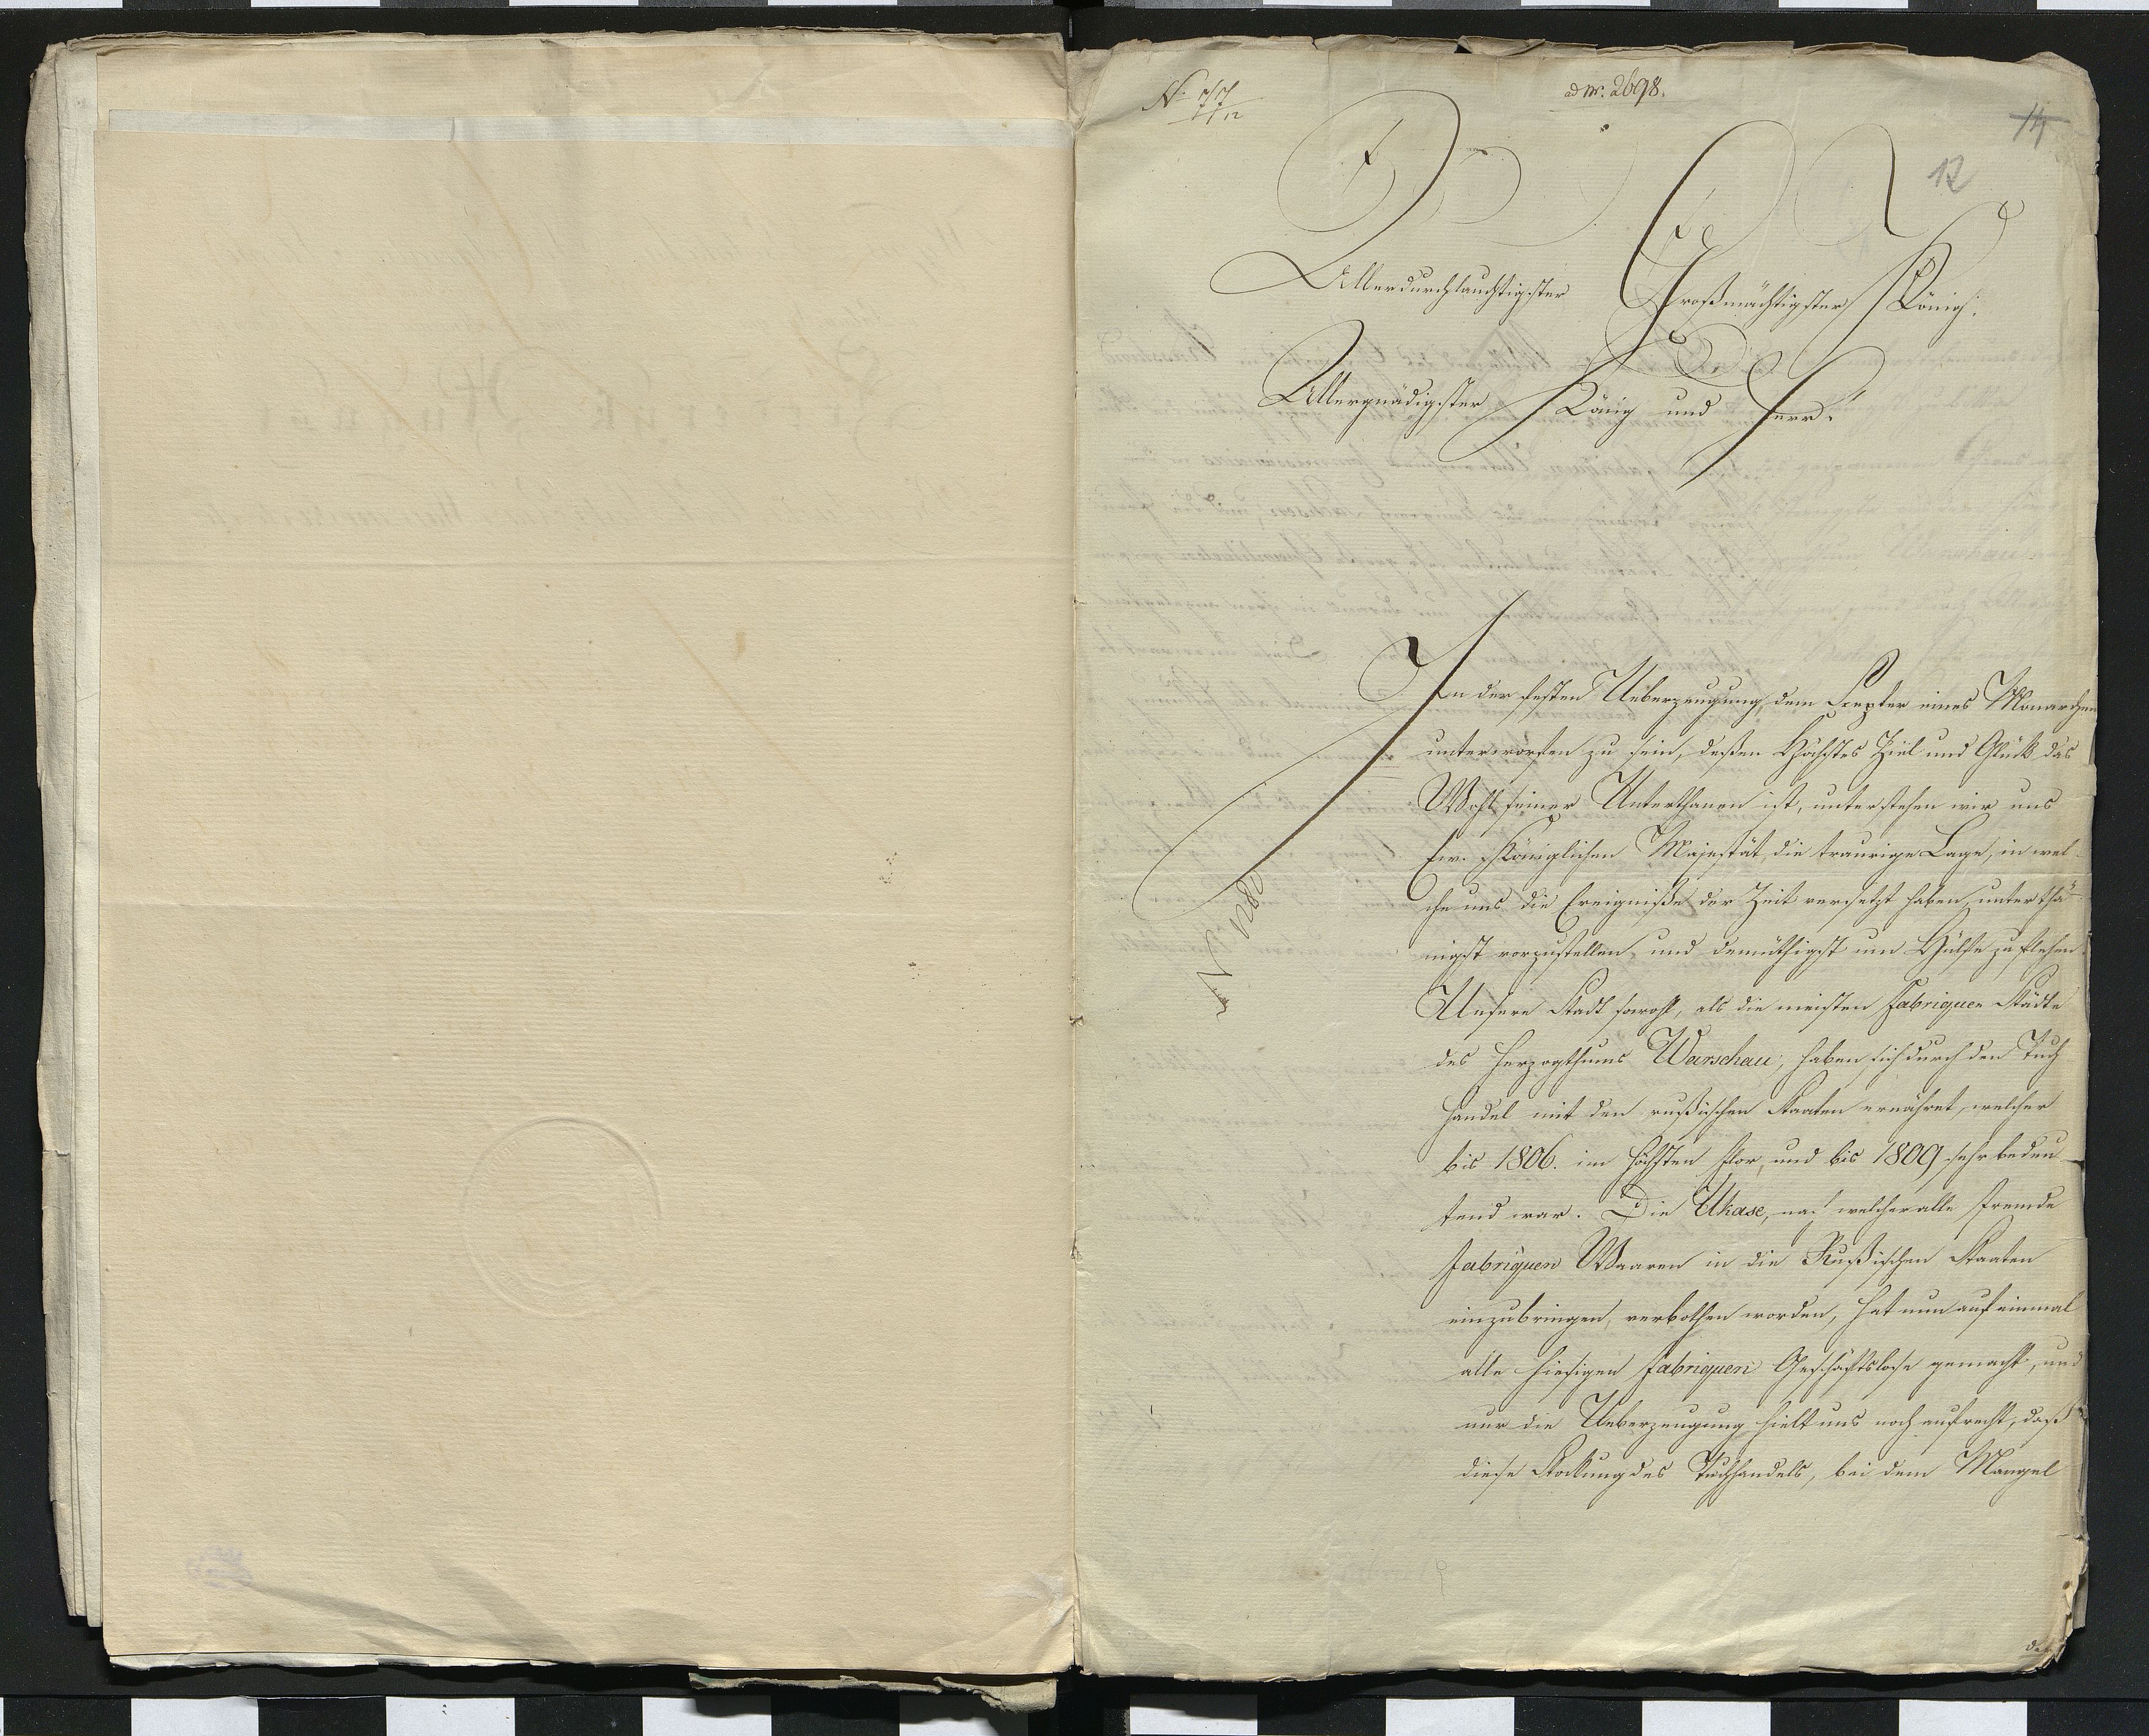 N 77/12
ad Nr. 2698.
14
12
Allerdurchlauchtigster Großmächtigster König!
Allergnädigster König und Herr!
In der festen Ueberzeugung, dem Scepter eines Monarchen
unterworfen zu sein, deßen Höchstes Ziel und Glück das
Wohl seiner Unterthanen ist, unterstehen wir uns
Ew. Königlichen Majestät, die traurige Lage, in wel-
che uns die Ereigniße der Zeit versetzt haben, unterthä-
nigst vorzustellen, und demüthigst um Hülfe zu flehen.
N 1280
Unsere Stadt sowohl, als die meisten Fabriquen Städte
des Herzogthums Warschau, haben sich durch den Tuch
handel mit den rußischen Staaten ernähret, welcher
bis 1806. im höchsten Flor, und bis 1809 sehr bedeu
tend war. Die Ukase, nach welcher alle fremde
Fabriquen Waaren in die Rußischen Staaten
einzubringen, verbothen worden, hat nun auf einmal
alle hiesigen Fabriquen Geschäftslose gemacht, und
nur die Ueberzeugung hielt uns noch aufrecht, daß
diese Stockung des Tuchhandels, bei dem Mangel